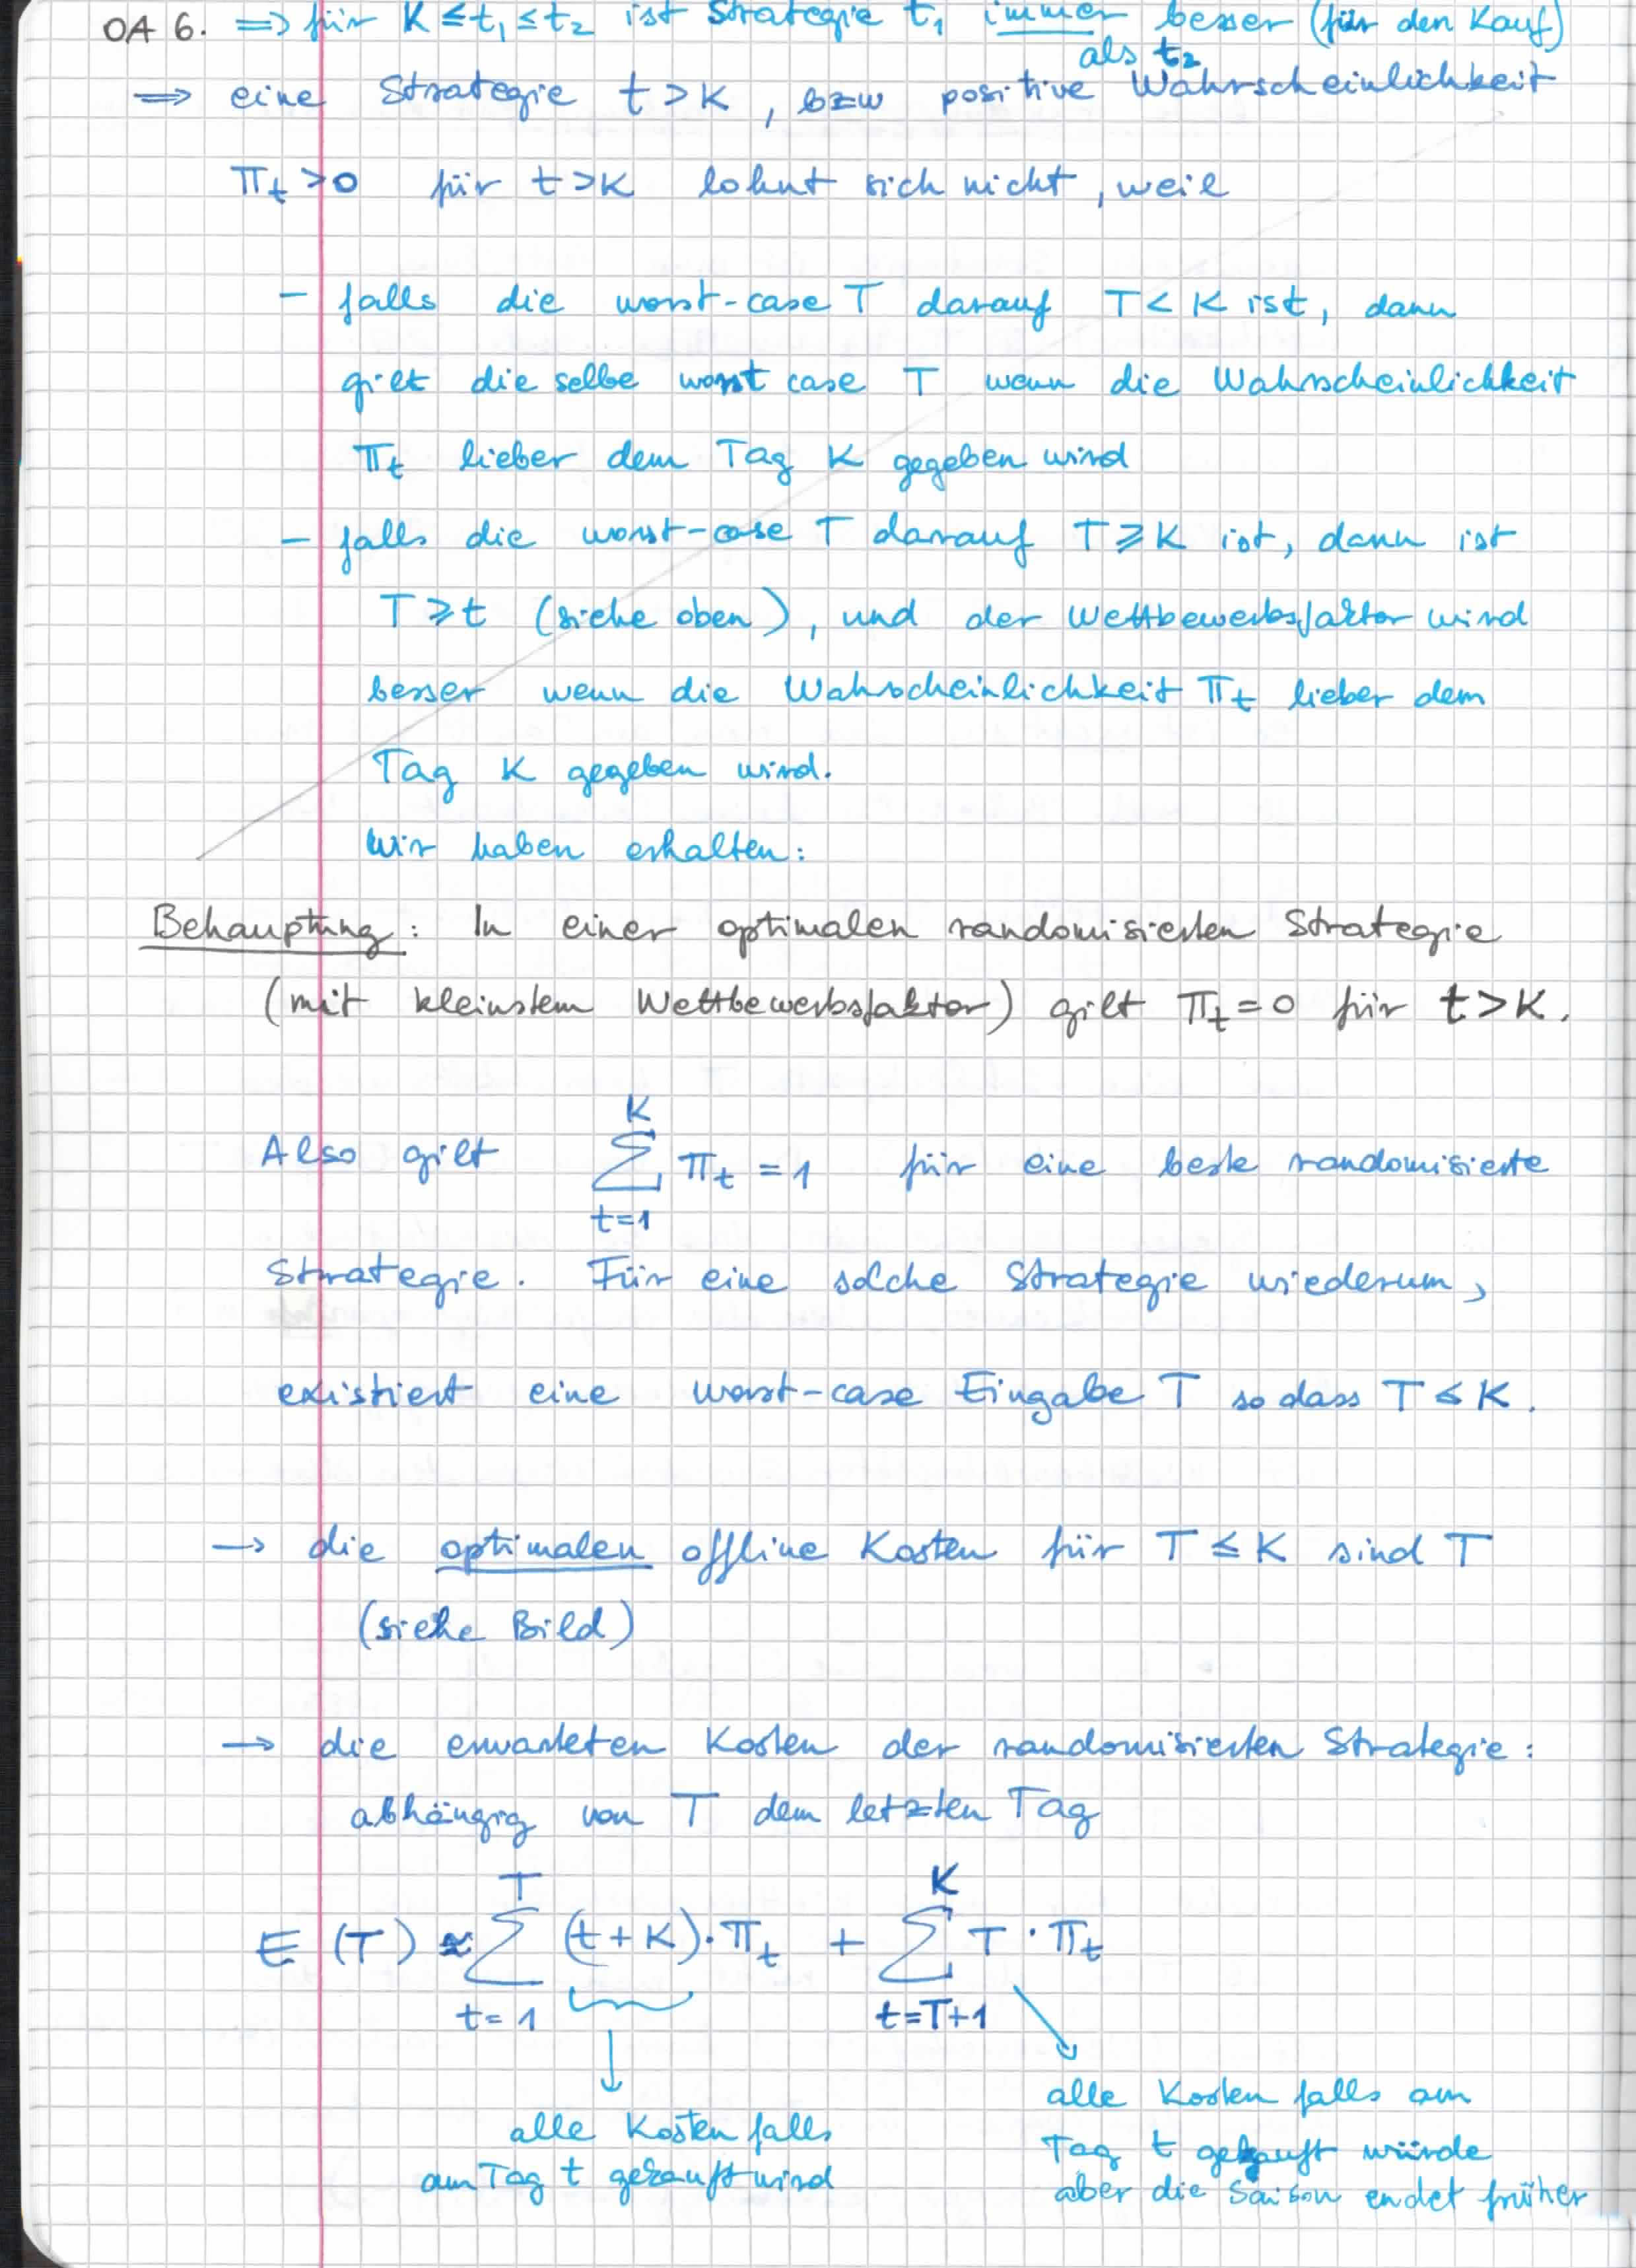 OA 6. ⇒ für K ≤ t₁ ≤ t₂ ist Strategie t₁ immer besser (für den Kauf)
als t₂
⇒ eine Strategie t > K, bzw positive Wahrscheinlichkeit
π_t > 0 für t > K lohnt sich nicht, weil
- falls die worst-case T darauf T < K ist, dann
gilt die selbe worst case T wenn die Wahrscheinlichkeit
π_t lieber dem Tag K gegeben wird
- falls die worst-case T darauf T ⩾ K ist, dann ist
T ⩾ t (siehe oben), und der Wettbewerbsfaktor wird
besser wenn die Wahrscheinlichkeit π_t lieber dem
Tag K gegeben wird.
Wir haben erhalten:
Behauptung: In einer optimalen randomisierten Strategie
(mit kleinstem Wettbewerbsfaktor) gilt π_t = 0 für t > K.
Also gilt ∑_{t=1}^{K} π_t = 1 für eine beste randomisierte
Strategie. Für eine solche Strategie wiederum,
existiert eine worst-case Eingabe T so dass T ≤ K.
→ die optimalen offline Kosten für T ≤ K sind T
(siehe Bild)
→ die erwarteten Kosten der randomisierten Strategie:
abhängig von T dem letzten Tag
E(T) ≈ ∑_{t=1}^{T} (t+K)·π_t + ∑_{t=T+1}^{K} T·π_t
alle Kosten falls
am Tag t gekauft wird
alle Kosten falls am
Tag t gekauft würde
aber die Saison endet früher